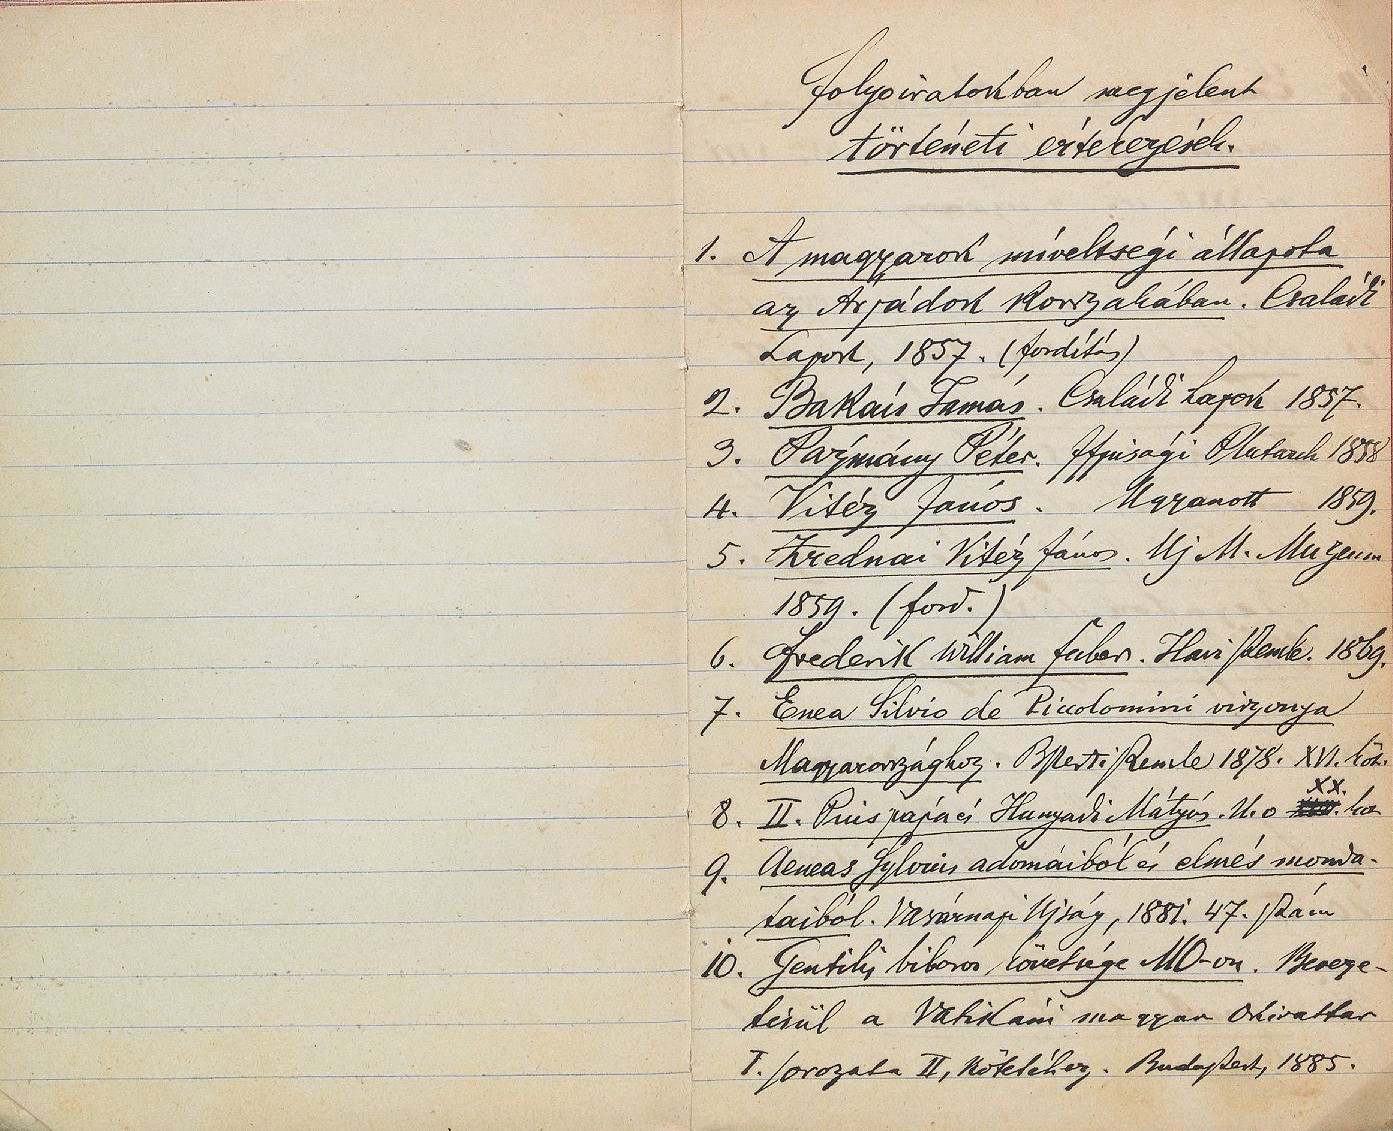 Folyoiratokban megjelent
történeti értekezések.
1. A magyarok míveltségi állapota
az Árpádok korszakában. Családi
Lapok, 1857. (fordítás)
2. Bakáis Tamás. Családi Lapok 1857.
3. Pázmány Péter. Ifjusági Plutarch 1858
4. Vitéz János. Ugyanott 1859.
5. Zrednai Vitéz János. Uj M. Muzeum
1859. (ford.)
6. Frederik William Faber. Havi Szemle. 1869.
7. Enea Silvio de Piccolomini viszonya
Magyarországhoz. BPesti Szemle 1878. XVI. köt.
8. II. Pius pápa és Hunyadi Mátyás. U. o XX. kö
9. Aeneas Sylvius adomáiból és elmés monda-
taiból. Vasárnapi Ujság, 1881. 47. szám
10. Gentilis bíboros követsége MO-on. Beveze-
tésül a Vatikáni magyar Okirattár
I. sorozata II, kötetéhez. Budapest, 1885.